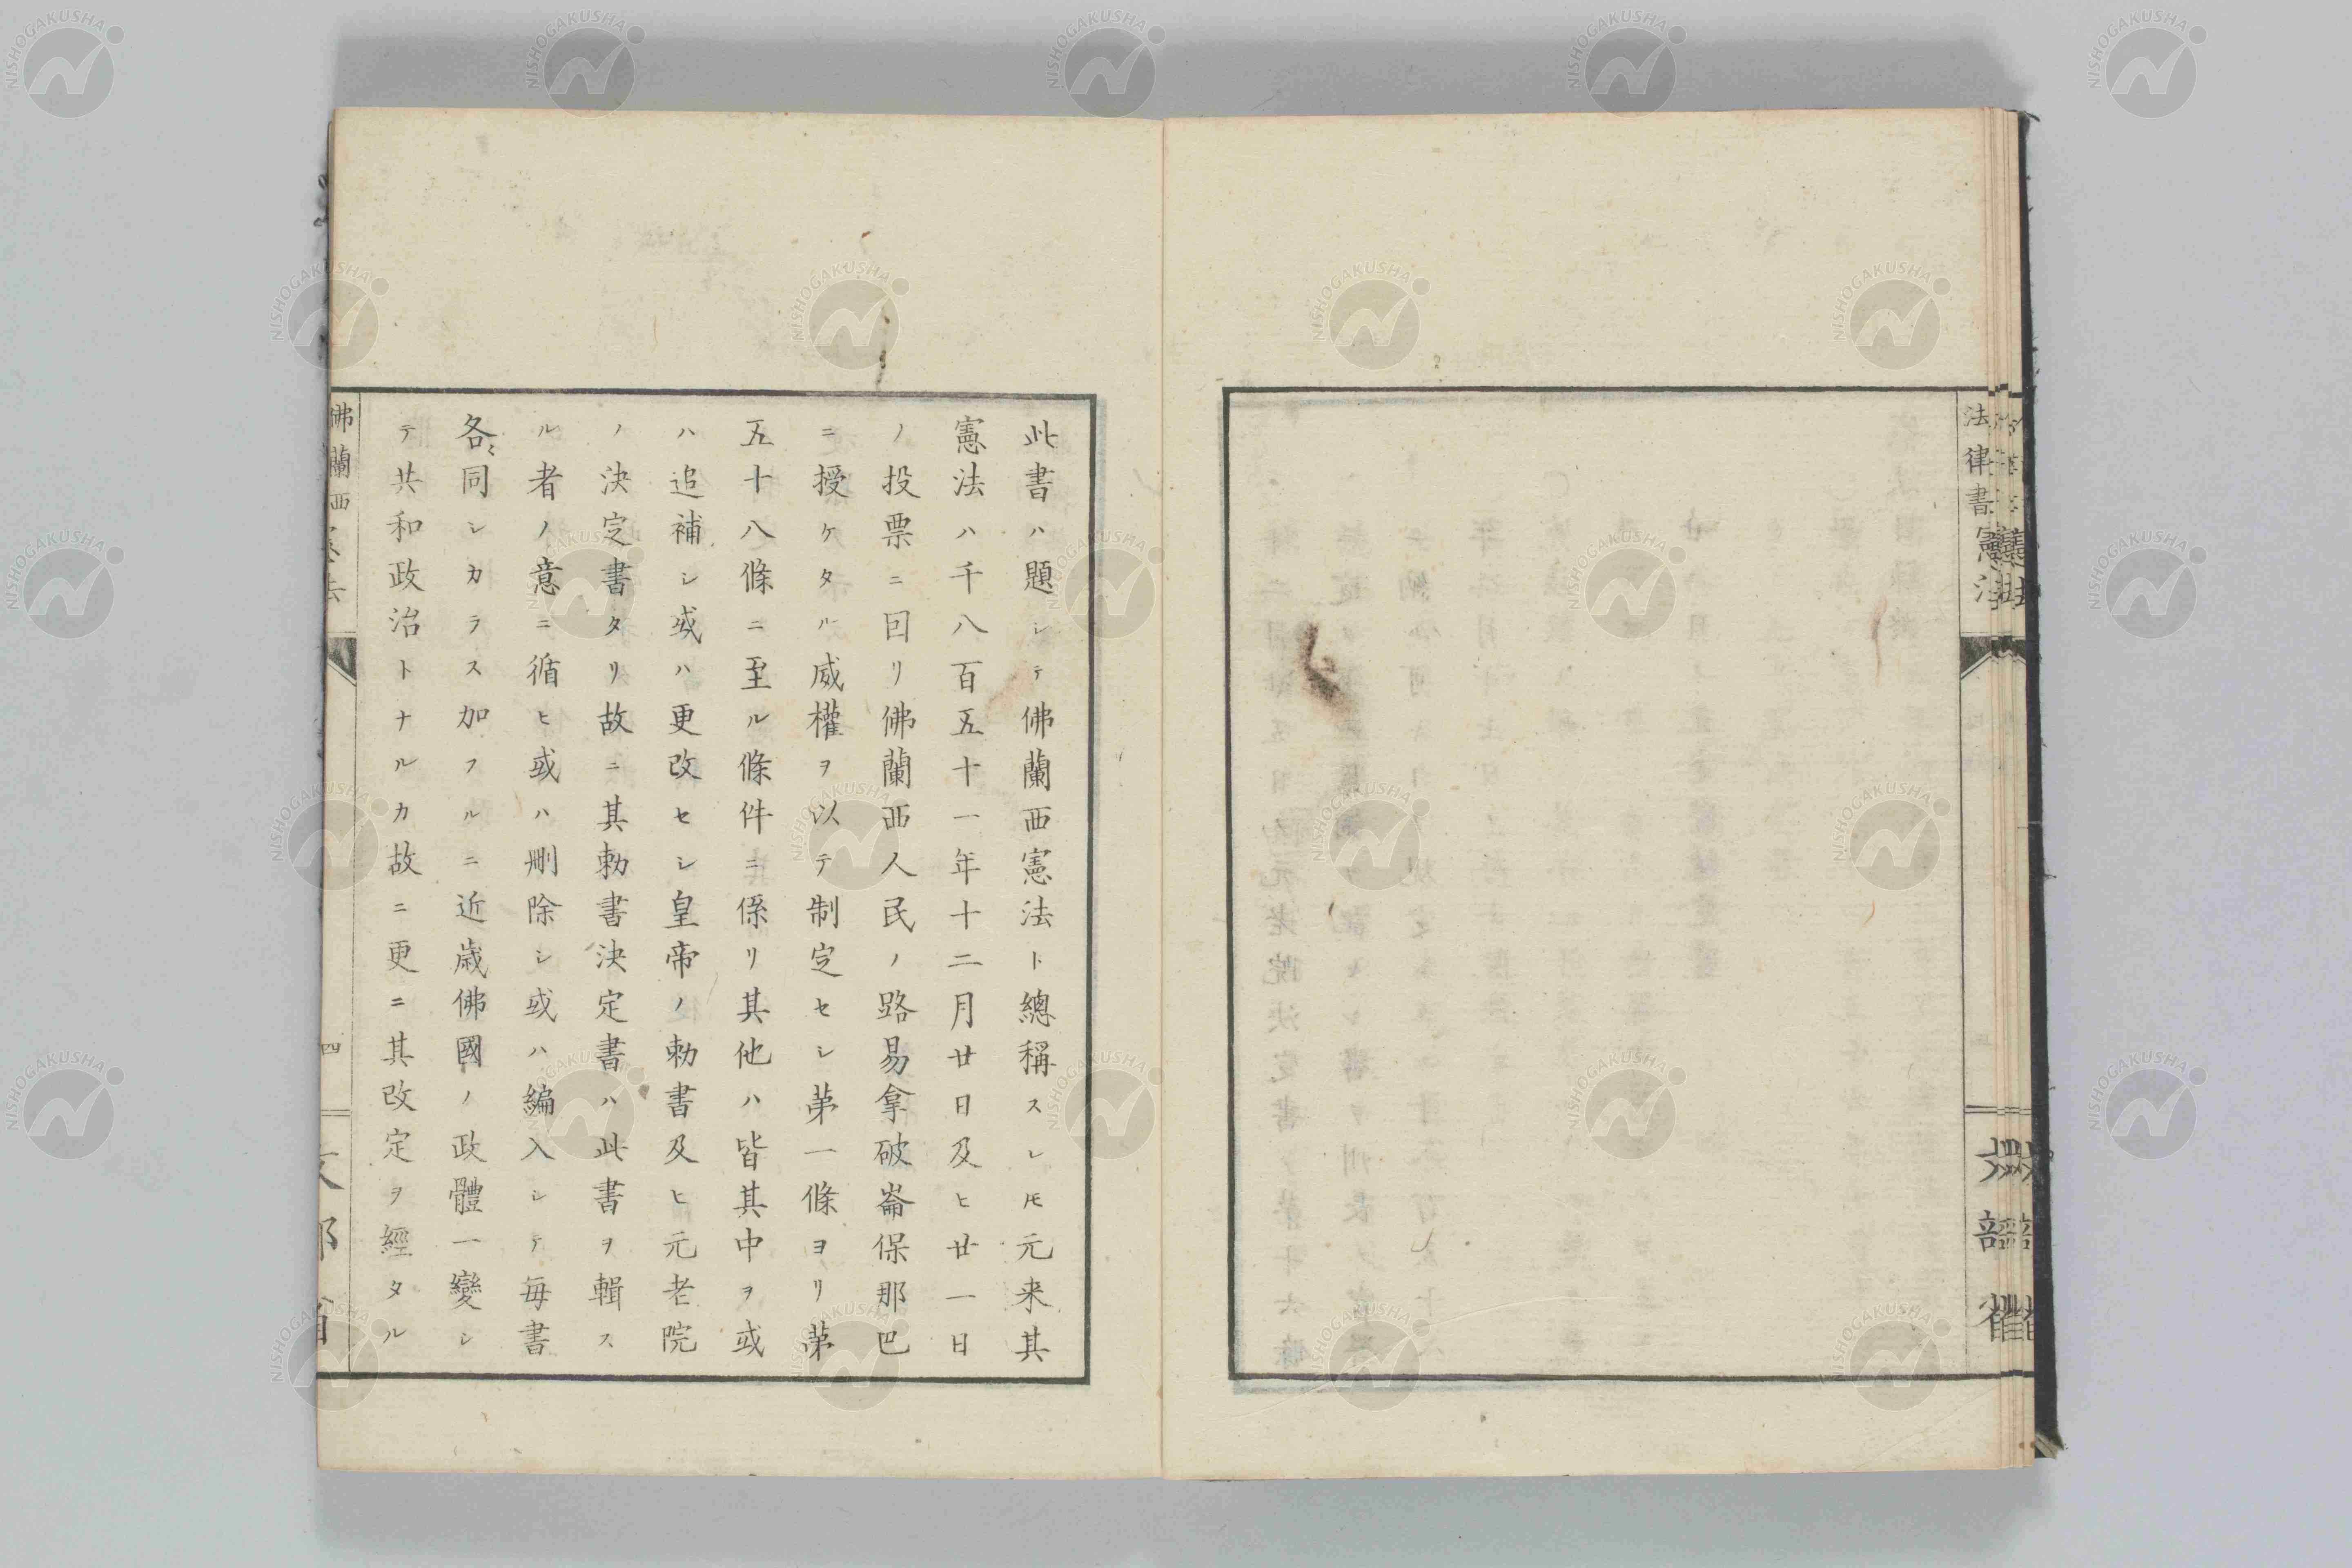 法律書
憲法
此書ハ題シテ佛蘭西憲法ト總稱スレ𪜈元来其
憲法ハ千八百五十一年十二月廿日及ヒ廿一日
ノ投票ニ因リ佛蘭西人民ノ路易拿破崙保那巴
ニ授ケタル威權ヲ以テ制定セシ第一條ヨリ第
五十八條ニ至ル條件ニ係リ其他ハ皆其中ヲ或
ハ追補シ或ハ更改セシ皇帝ノ勅書及ヒ元老院
ノ決定書タリ故ニ其勅書決定書ハ此書ヲ輯ス
ル者ノ意ニ循ヒ或ハ刪除シ或ハ編入シテ毎書
各〻同シカラス加フルニ近歳佛國ノ政體一變シ
テ共和政治トナルカ故ニ更ニ其改定ヲ經タル
佛蘭西
四
NISHOGAKUSHA